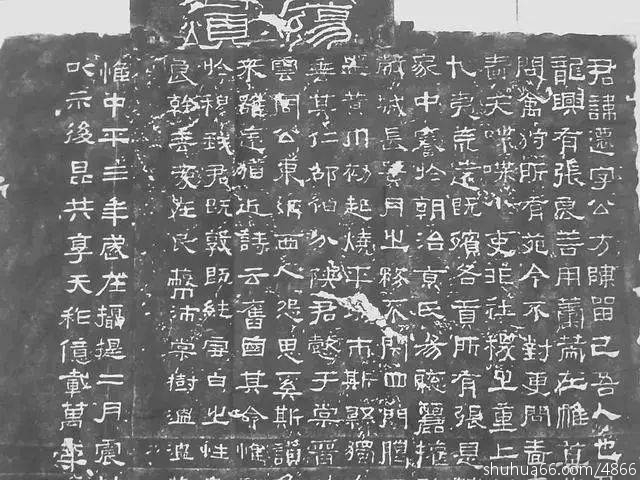 君諱遷字公方陳留己吾人也君
龍興有張良善用籌策在帷幕
問禽狩所有苑令不對更問嗇夫
嗇夫喋喋小吏非社稷之重上
九夷荒遠既殯各貢所有張是
家中謇於朝治京氏易聰麗權
穀城長蠶月之務不閉四門臘
然黃巾初起燒平城市斯縣獨
垂其仁邵伯分陝君懿于棠晉
雲周公東征西人怨思奚斯讚
來雖遠猶近詩云舊國其命惟
於穆我君既敦既純雪白之性
良幹垂愛在民蔽沛棠樹溫溫
惟中平三年歲在攝提二月震
以示後昆共享天祚億載萬年
shuhua66.com/4866